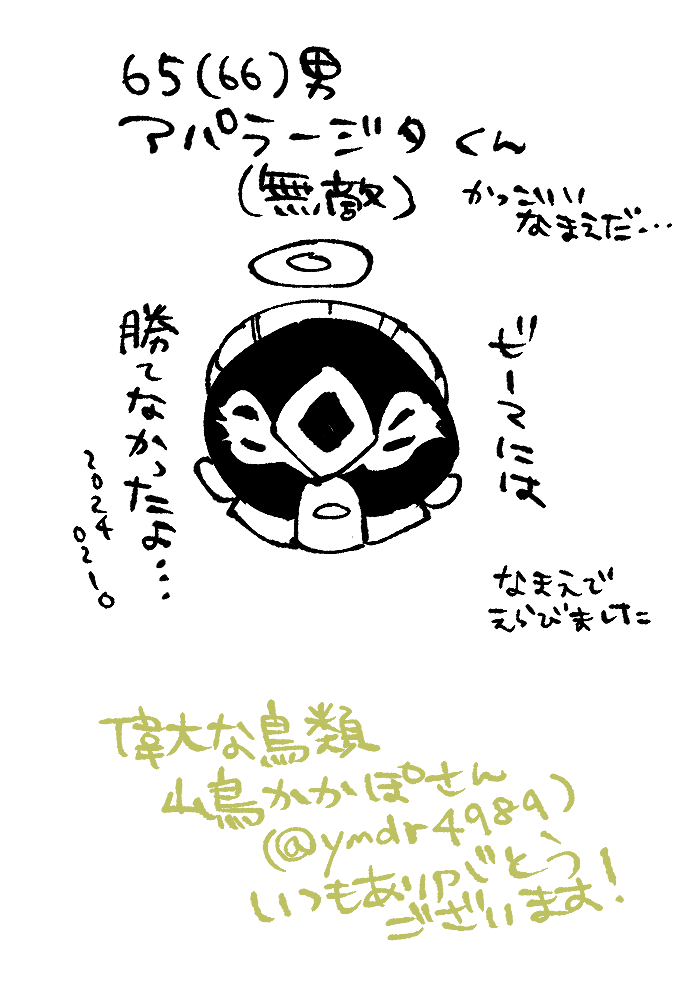 65(66)男
アパラージタくん
(無敵)
かっこいい
なまえだ...
ぜーマには
勝てなかったよ...
2024
0210
なまえで
えらびました
偉大な鳥類
山鳥かかぽさん
(@ymdr4989)
いつもありがとう
ございます!